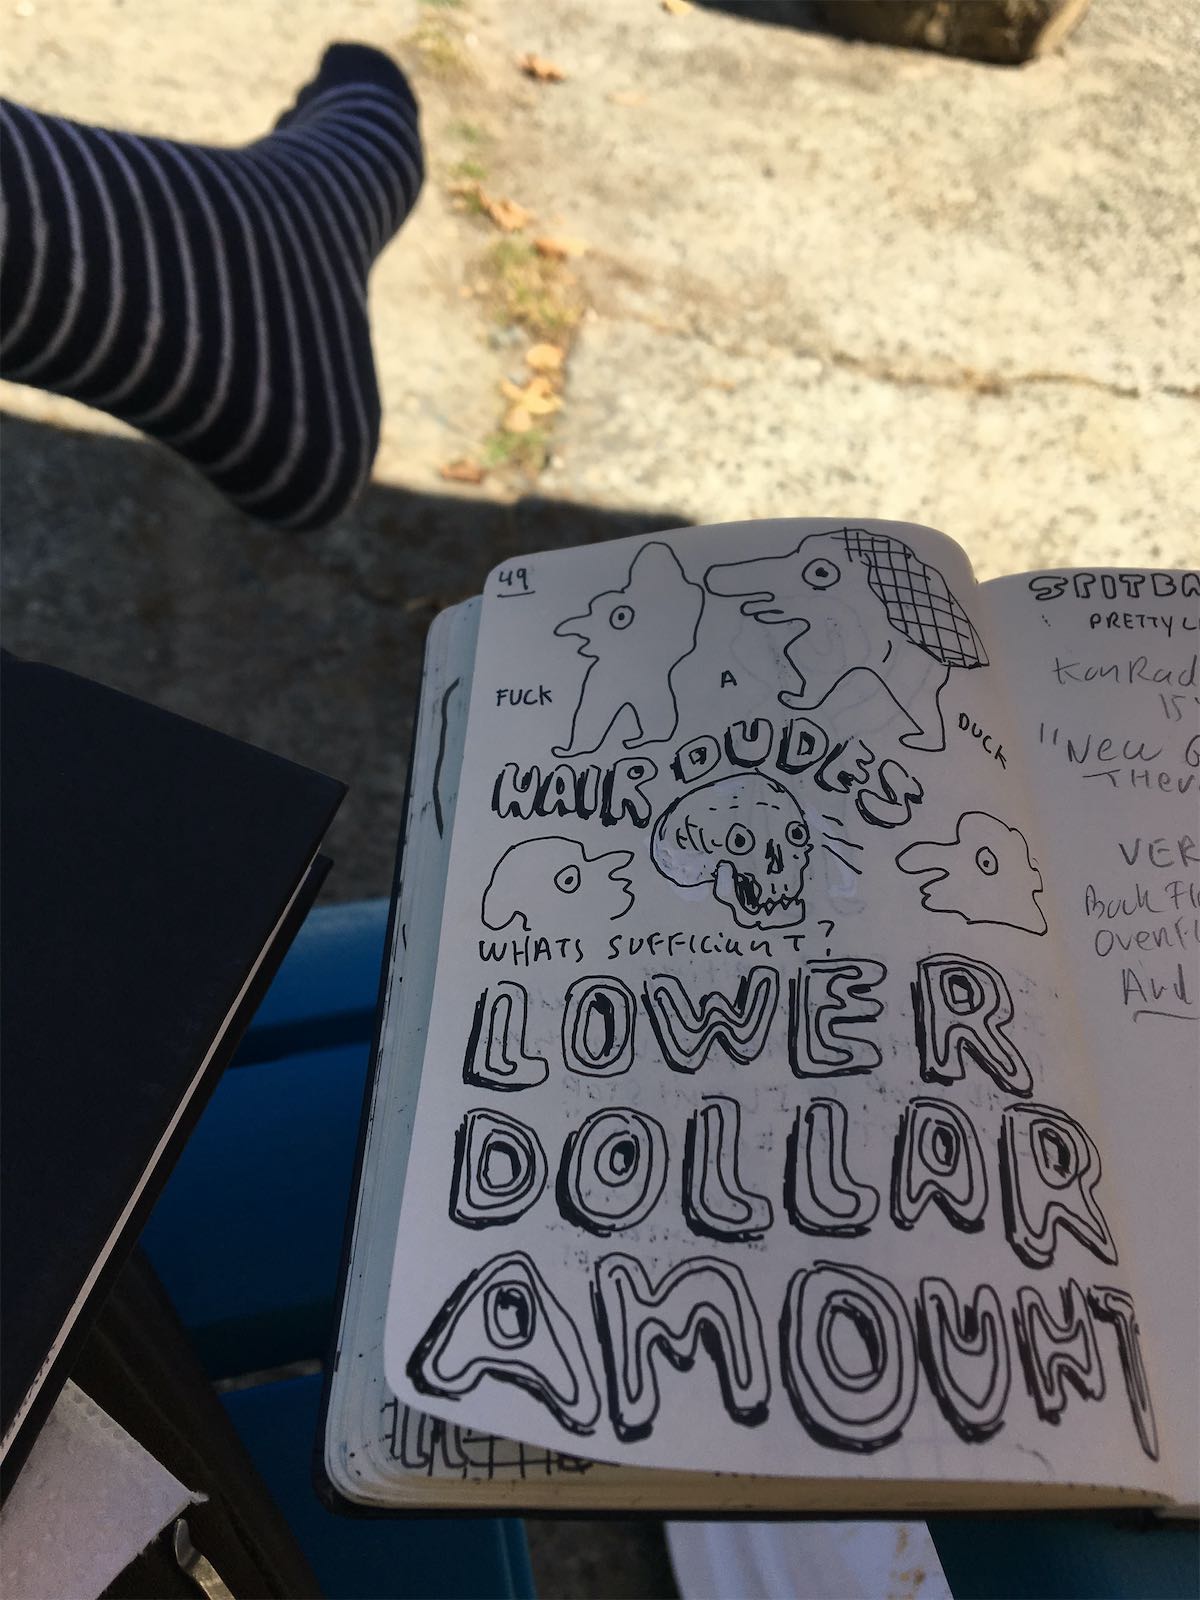 49
FUCK A DUCK
HAIR DUDES
WHATS SUFFICIANT?
LOWER
DOLLAR
AMOUNT
PRETTY
KonRad
15
"New
VER
Back
Ovenfl
And